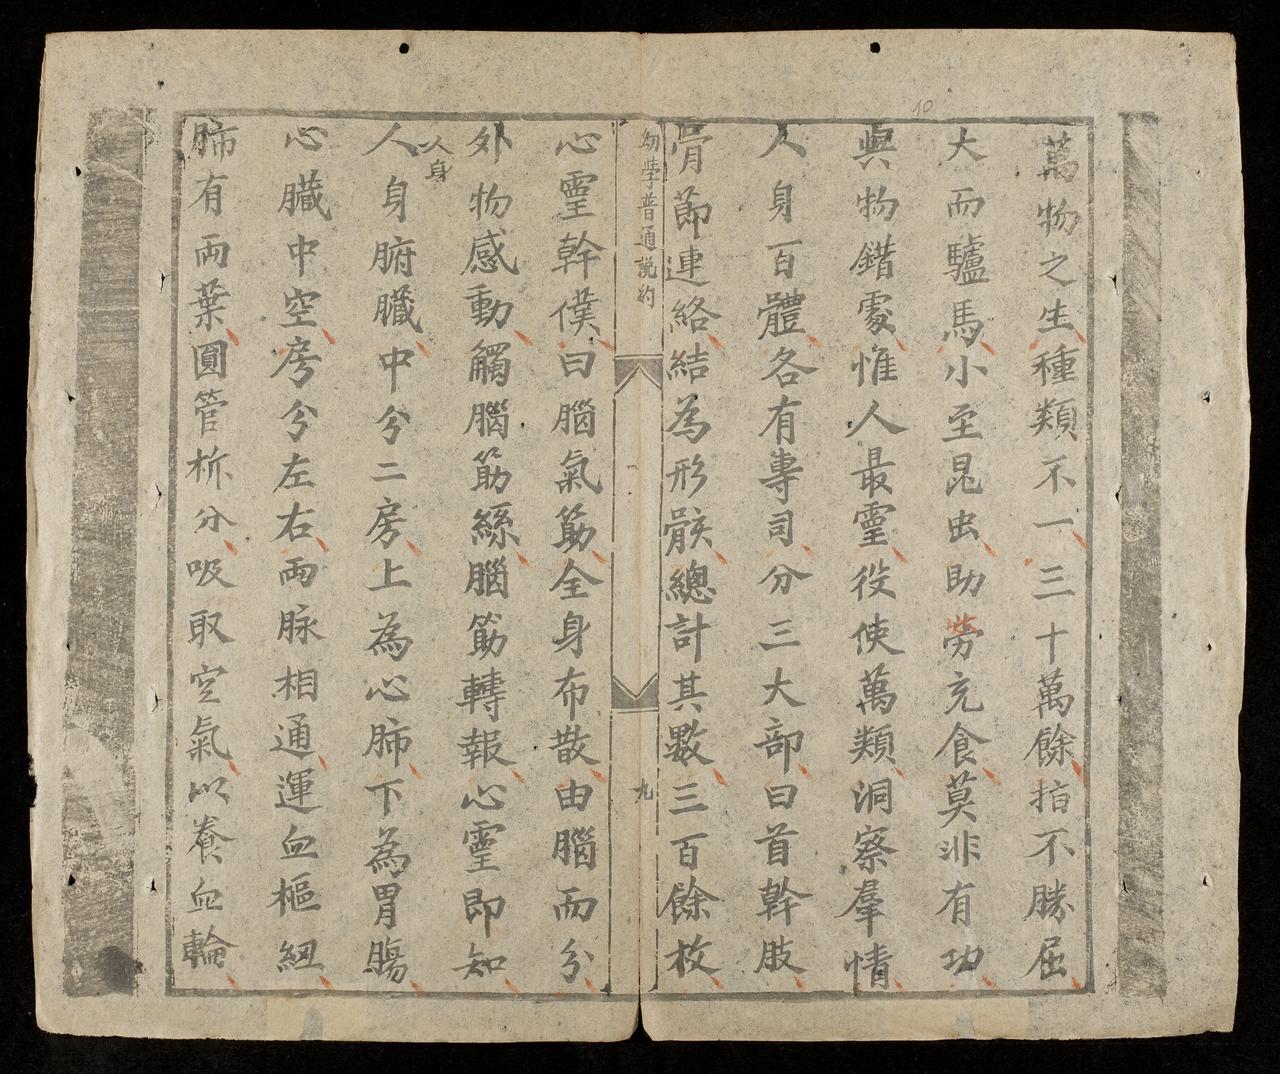 10
萬物之生種類不一三十萬餘指不勝屈
大而驢馬小至昆虫助劳充食莫非有功
與物錯處惟人最霊役使萬類洞察羣情
人身百體各有専司分三大部曰首幹肢
骨莭連絡結為形骸總計其數三百餘枚
幼學普通説約
九
心霊幹僕曰腦氣筋全身布散由腦而分
外物感動觸腦筋絲腦筋轉報心霊即知
人身
人身腑臓中分二房上為心肺下為胃腸
心臓中空房分左右兩脉相通運血樞紐
肺有両葉圓管析分吸取空氣以養血輪